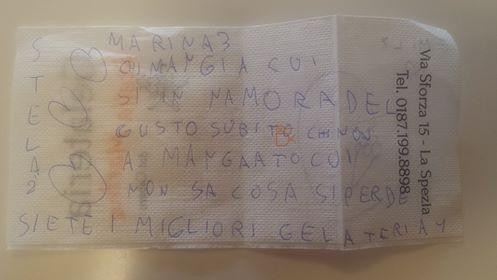 MARINA3
CHI MANGIA CUI
SI IN NAMORA DEL
GUSTO SUBITO CHI NON
A MANGAATO CUI
NON SA COSA SI PERDE
SIETE I MIGLIORI GELATERIA 1
STELA2
Via Sforza 15 - La Spezia
Tel. 0187.199.8898